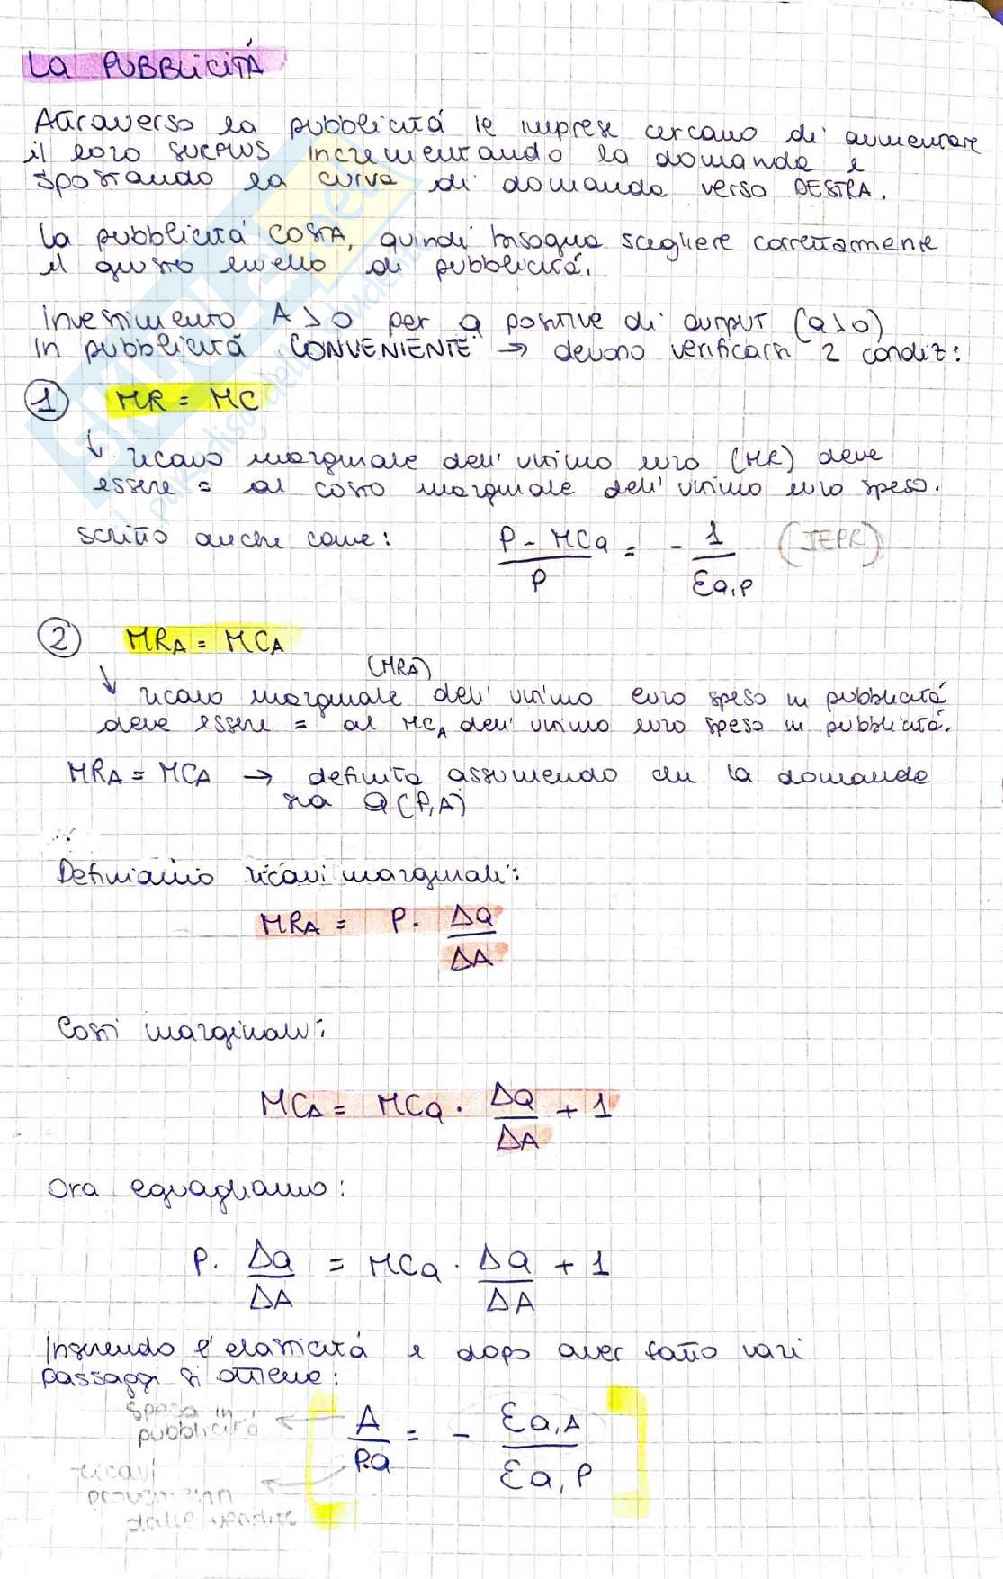 La PUBBLICITÀ
Attraverso la pubblicità le imprese cercano di aumentare
il loro SURPLUS incrementando la domanda e
spostando la curva di domanda verso DESTRA.
La pubblicità COSTA, quindi bisogna scegliere correttamente
il giusto livello di pubblicità.
Investimento A>0 per Q positive di output (Q>0)
in pubblicità "CONVENIENTE" → devono verificarsi 2 condiz:
① MR = MC
↓ ricavo marginale dell'ultimo euro (MR) deve
essere = al costo marginale dell'ultimo euro speso.
scritto anche come: (P - MCQ)/P = - 1/εQ,P (IEPR)
② MRA = MCA
(MRA)
↓ ricavo marginale dell'ultimo euro speso in pubblicità
deve essere = al MCA dell'ultimo euro speso in pubblicità.
MRA = MCA → definita assumendo che la domanda
sia Q(P,A)
Definiamo ricavi marginali:
MRA = P · ΔQ/ΔA
Costi marginali:
MCA = MCQ · ΔQ/ΔA + 1
Ora eguagliamo:
P · ΔQ/ΔA = MCQ · ΔQ/ΔA + 1
Inserendo l'elasticità e dopo aver fatto vari
passaggi si ottiene:
spesa in pubblicità ← A/P·Q = - εQ,A/εQ,P
ricavi
provenienti
dalle vendite